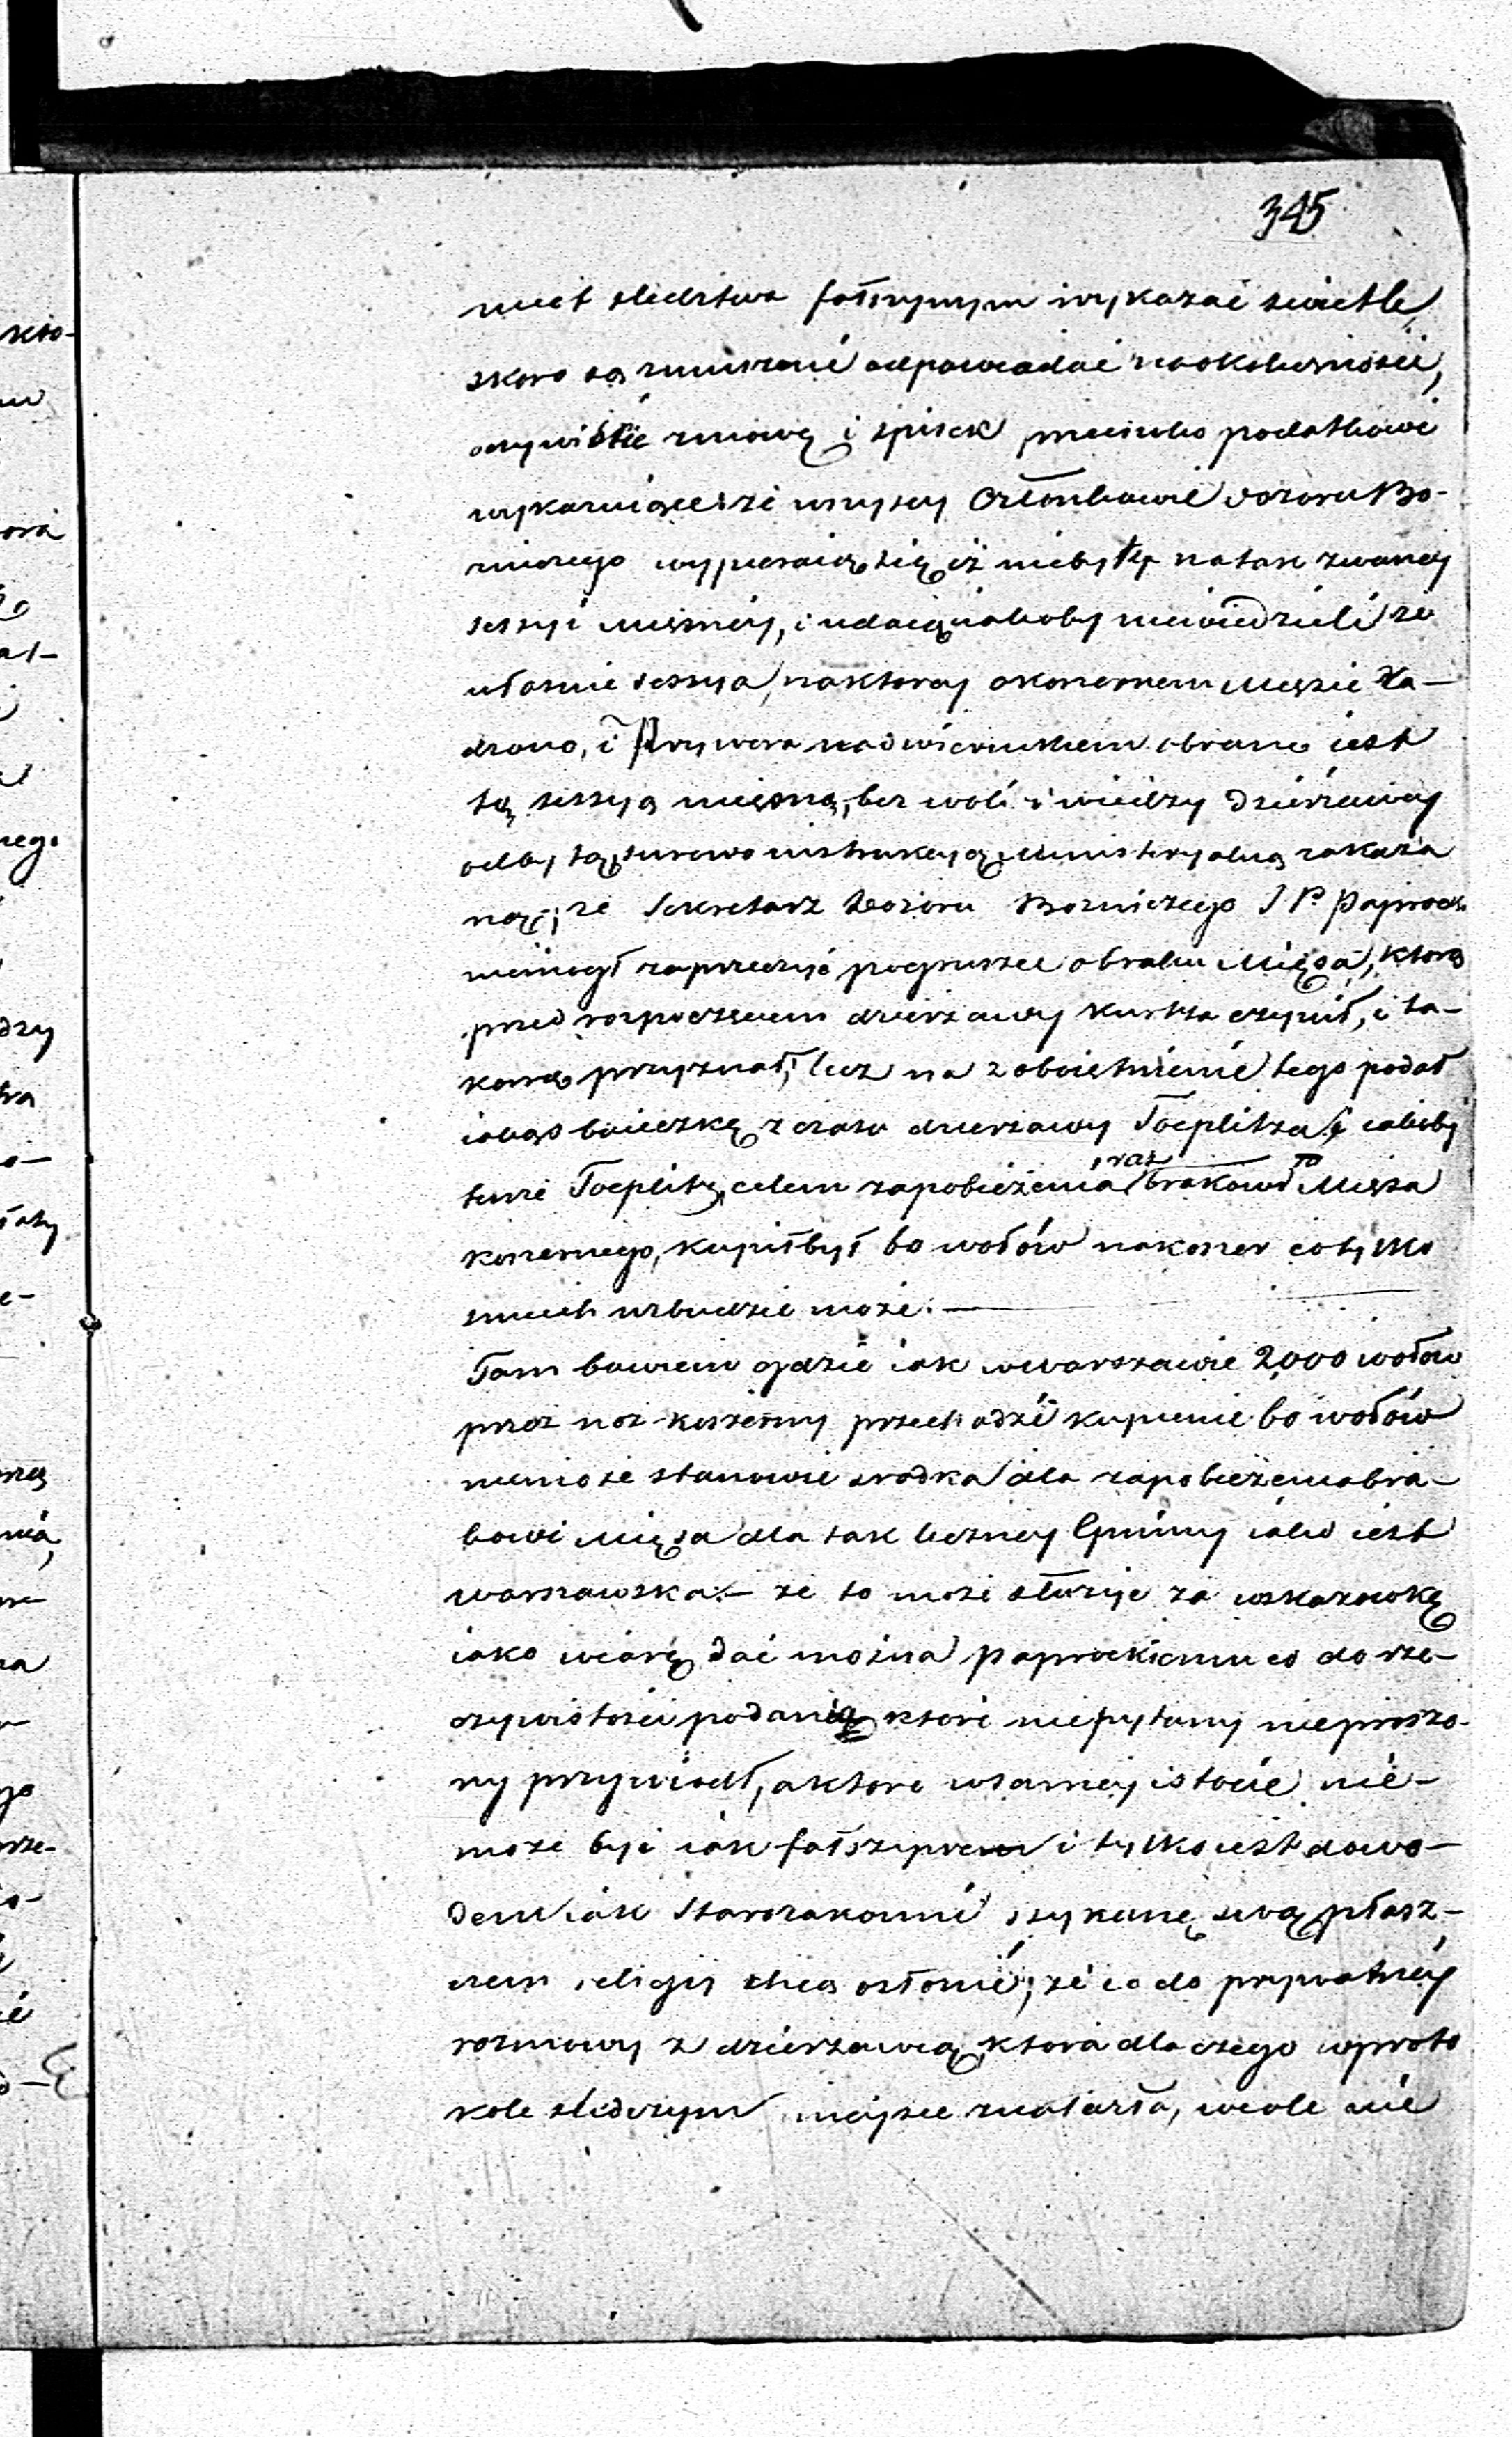 345
sledztwa fałszywym wykazać swietle,
skoro są zmuszeni odpowiadać na okoliczności,
oczywiście zmowę i spisek przeciwko podatkowi
wykazuiące; że wszyscy Członkowie dozoru Bo-
zniczego wypieraią się iż niebyły na tak zwaney
sessyi mięsnéy, i udaią iakoby niewiedzieli że
własnie sessya, na ktorey o koszernem Mięsie Ra-
dzono, i Krywera nadwiernikiem obrano iest
tą sessyą mięsną, bez woli i wiedzy Dzierżawcy
odbytą, surowo instrukcyą Ministeryalną zakaza
ną; że Sekretarz Dozoru Bozniczego J P. Paprocki
niemogł zaprzeczyć pogrozce obraku Mięsa, ktorą
przed rozpoczęciem dzierzawy Kurtza czynił, i ta-
kową przyznał, lecz na zobojętnienie tego podał
iakąś baieczkę z czasu dzierzawy Toeplitza, iakoby
tenże Toeplitz, celem zapobieżenia brakowi Mięsa
koszernego, kupił był 60 wołów na koszer co tylko
smiech wzbudzić może. —
Tam bowiem gdzie iak w Warszawie 2,000 wołow
przez noż koszerny przechodzi kupienie 60 wołów
niemoże stanowić srodka dla zapobieżenia bra-
kowi Mięsa dla tak liczney Gminy iako iest
Warszawska. — że to może służyć za wskazowkę
iako wiarę dać można Paprockiemu co do rze-
czywistości podania ktore niepytany nieproszo-
ny przywiodł, a ktore w samey istocie nie-
może być iak fałszywem i tylko iest dowo-
dem iak Starozakonni szykanę swą płasz-
czem religii chcą osłonić; że co do prywatnéy
rozmowy z dzierzawcą, ktora dla czego w proto
kole sledczym miejsce znalazła, wcale nie